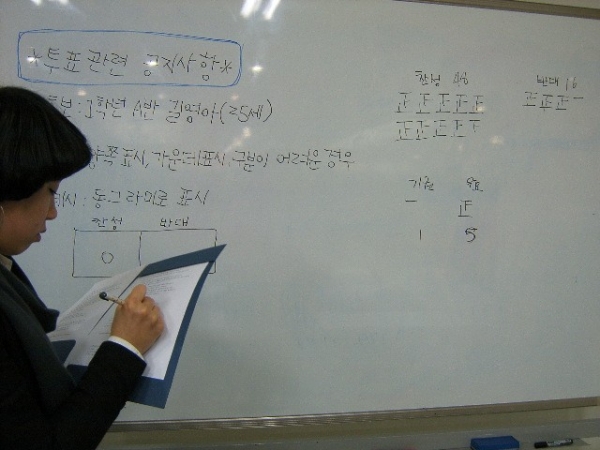 *투표 관련 공지사항*
후보 : 1학년 A반 길영아 (25세)
양쪽표시, 가운데표시, 구분이 어려운 경우
예시 : 동그라미로 표시
찬성 반대
O
찬성 48
正正正正正
正正正正
반대 16
正正正一
기권 무효
一 正
1 5